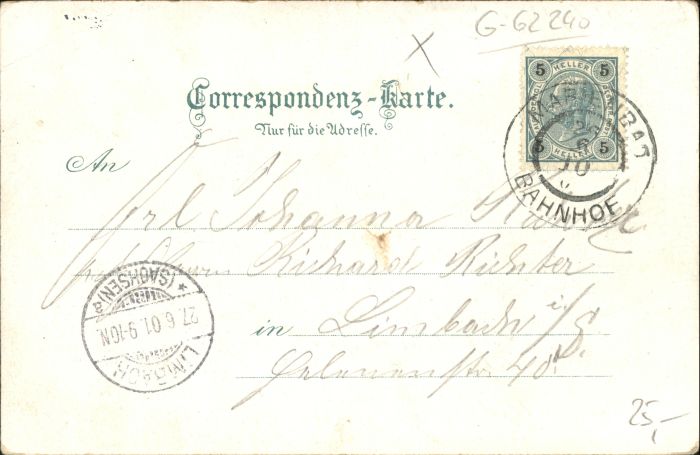 G-62240
x
5 HELLER 5
5 HELLER 5
Correspondenz-Karte.
Nur für die Adresse.
BAHNHOF
10
An
Frl. Johanna
Richard Richter
in Limbach i/S
Helenenstr 40
LIMBACH
* (SACHSEN) a
27.6.01.9-10N.
25,-